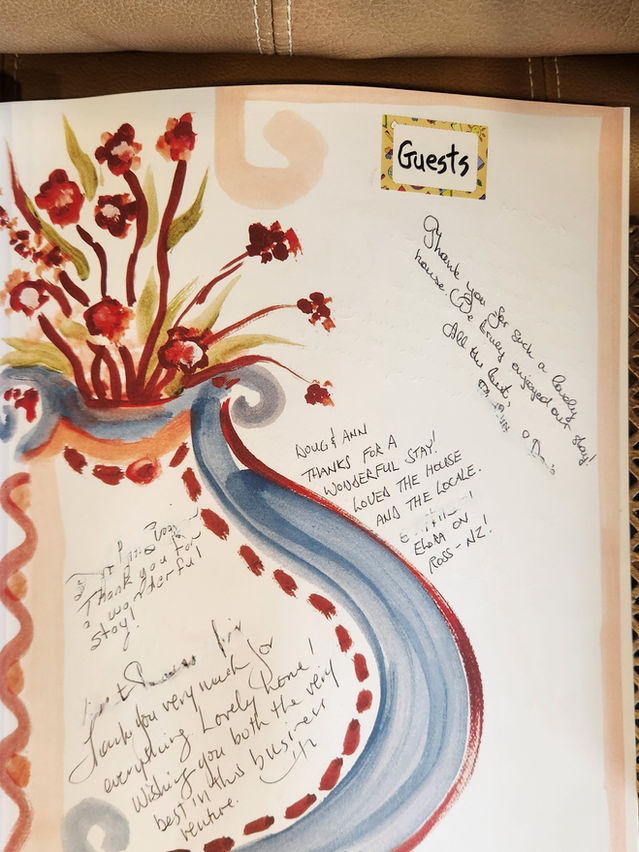 Guests
Thank you for such a lovely
house. We truly enjoyed our stay!
All the best,
DOUG & ANN
THANKS FOR A
WONDERFUL STAY!
LOVED THE HOUSE
AND THE LOCALE.
ELORA ON
ROSS - NZ!
Thank you for
a wonderful
stay!
Thank you very much for
everything. Lovely home!
Wishing you both the very
best in this business
venture.